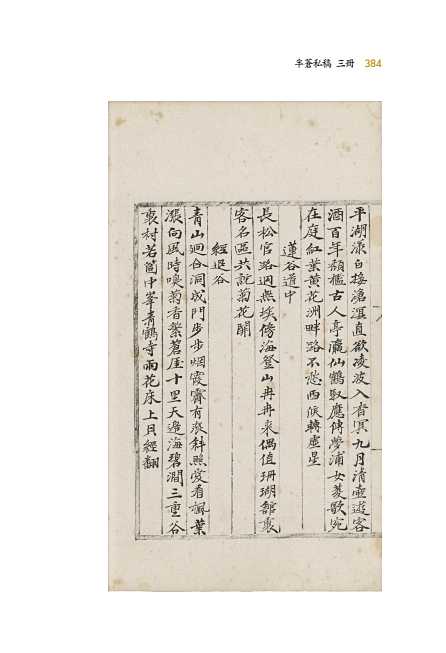 半蒼私稿 三冊 384
平湖漾白接滄溟直欲凌波入杳冥九月清壺遊客
酒百年頹檻古人亭瀛仙鶴馭應傳夢浦女菱歌宛
在庭紅葉黃花洲畔路不愁西候轉虛星
蓮谷道中
長松官路迥無埃傍海登山冉冉來偶值珊瑚舘裏
客名區共說菊花開
經遐谷
青山迴合洞成門步步烟霞霽有痕斜照愛看楓葉
漲向風時嗅菊香繁茗崖十里天邊海碧澗三重谷
裏村若箇中峯靑鶴寺雨花床上貝經翻